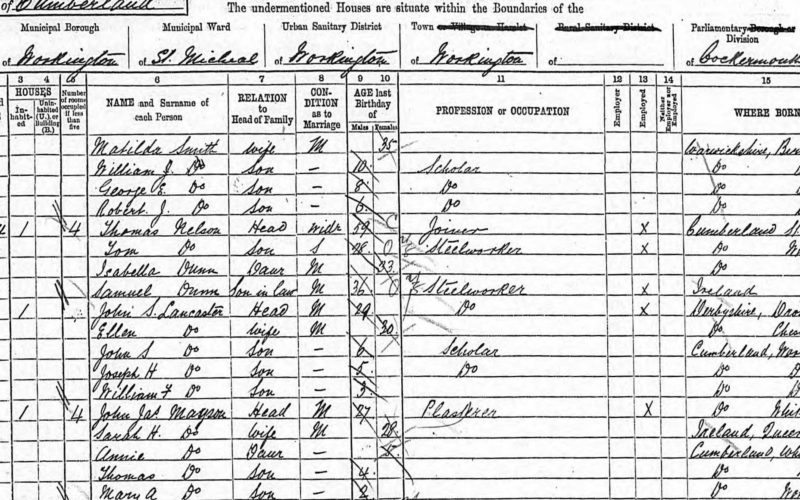 of Cumberland The undermentioned Houses are situate within the Boundaries of the
Municipal Borough Municipal Ward Urban Sanitary District Town or Village or Hamlet Rural Sanitary District Parliamentary Borough or Division
of Workington of St. Micheal of Workington of Workington of of Cockermouth
3 4 5 6 7 8 9 10 11 12 13 14 15
HOUSES In-habit-ed Unin-habited (U.) or Building (B.) Number of rooms occupied if less than five NAME and Surname of each Person RELATION to Head of Family CON-DITION as to Marriage AGE last Birthday of Males Females PROFESSION or OCCUPATION Employer Employed Neither Employer nor Employed WHERE BORN
Matilda Smith wife M 35 Warwickshire,
William J. Do son — 10 Scholar Do
George E. Do son — 8 Do Do
Robert J. Do son — 6 Do Do
1 4 Thomas Nelson Head widr 59 Joiner X Cumberland
Tom Do son S 28 Steelworker X Do
Isabella Dunn Daur M 33 Do
Samuel Dunn Son in law M 36 Steelworker X Ireland
1 John S. Lancaster Head M 29 Do X Derbyshire,
Ellen Do wife M 30 Do
John S Do son — 6 Scholar Cumberland,
Joseph H Do son — 5 Do Do
William F Do son — 3 Do
1 4 John Jas. Mayson Head M 27 Plasterer X Do
Sarah H. Do wife M 28 Ireland,
Annie Do Daur — 8 Cumberland,
Thomas Do son — 4 Do
Mary A Do — 2 Do